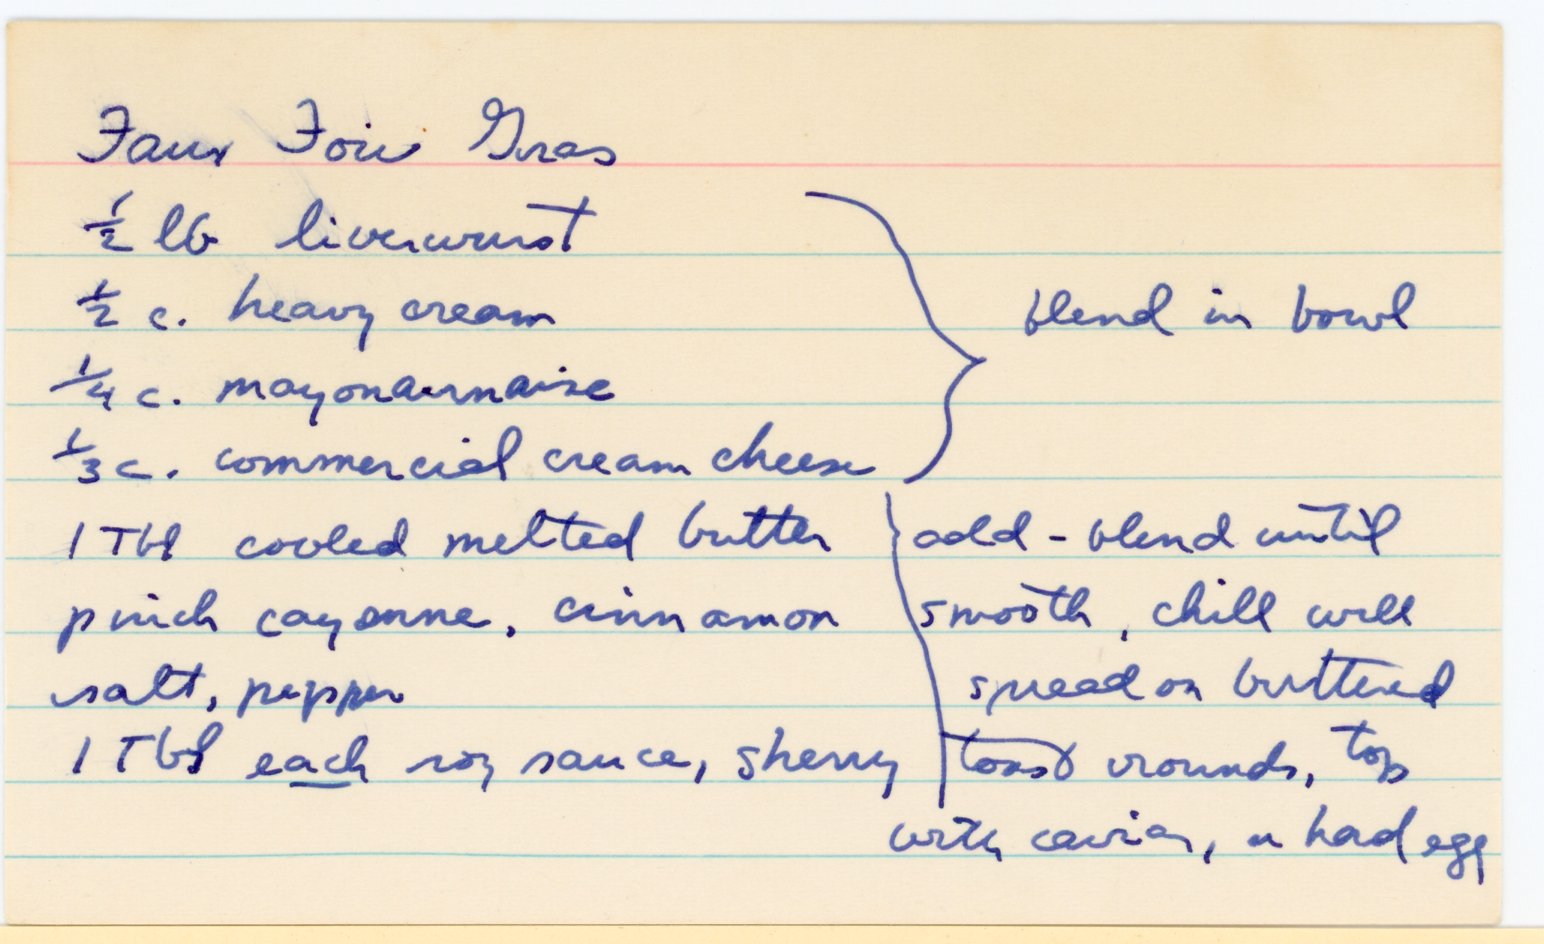 Faux Foie Gras
½ lb liverwurst
½ c. heavy cream
blend in bowl
¼ c. mayonainnaise
⅓ c. commercial cream cheese
1 Tbl cooled melted butter
pinch cayenne, cinnamon
salt, pepper
1 Tbl each soy sauce, sherry
add - blend until
smooth, chill well
spread on buttered
toast rounds, top
with caviar, or hard egg